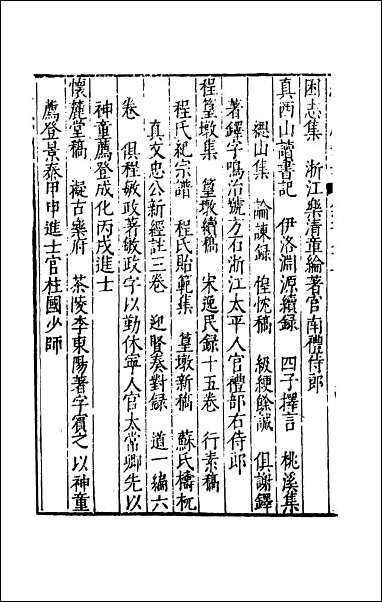 困志集　浙江樂清章綸著官南禮侍郎
真西山讀書記　伊洛淵源續録　四子擇言　桃溪集
緦山集　論諫録　惶忱稿　級綆餘誠　俱謝鐸
著鐸字鳴治號方石浙江太平人官禮部右侍郎
程篁墩集　篁墩續稿　宋逸民録十五卷　行素稿
程氏統宗譜　程氏貽範集　篁墩新稿　蘇氏檮杌
真文忠公新經註三卷　迎賢奏對録　道一編六
卷　俱程敏政著敏政字以勤休寧人官太常卿先以
神童薦登成化丙戌進士
懐麓堂稿　擬古樂府　茶陵李東陽著字賓之以神童
薦登景泰甲申進士官柱國少師